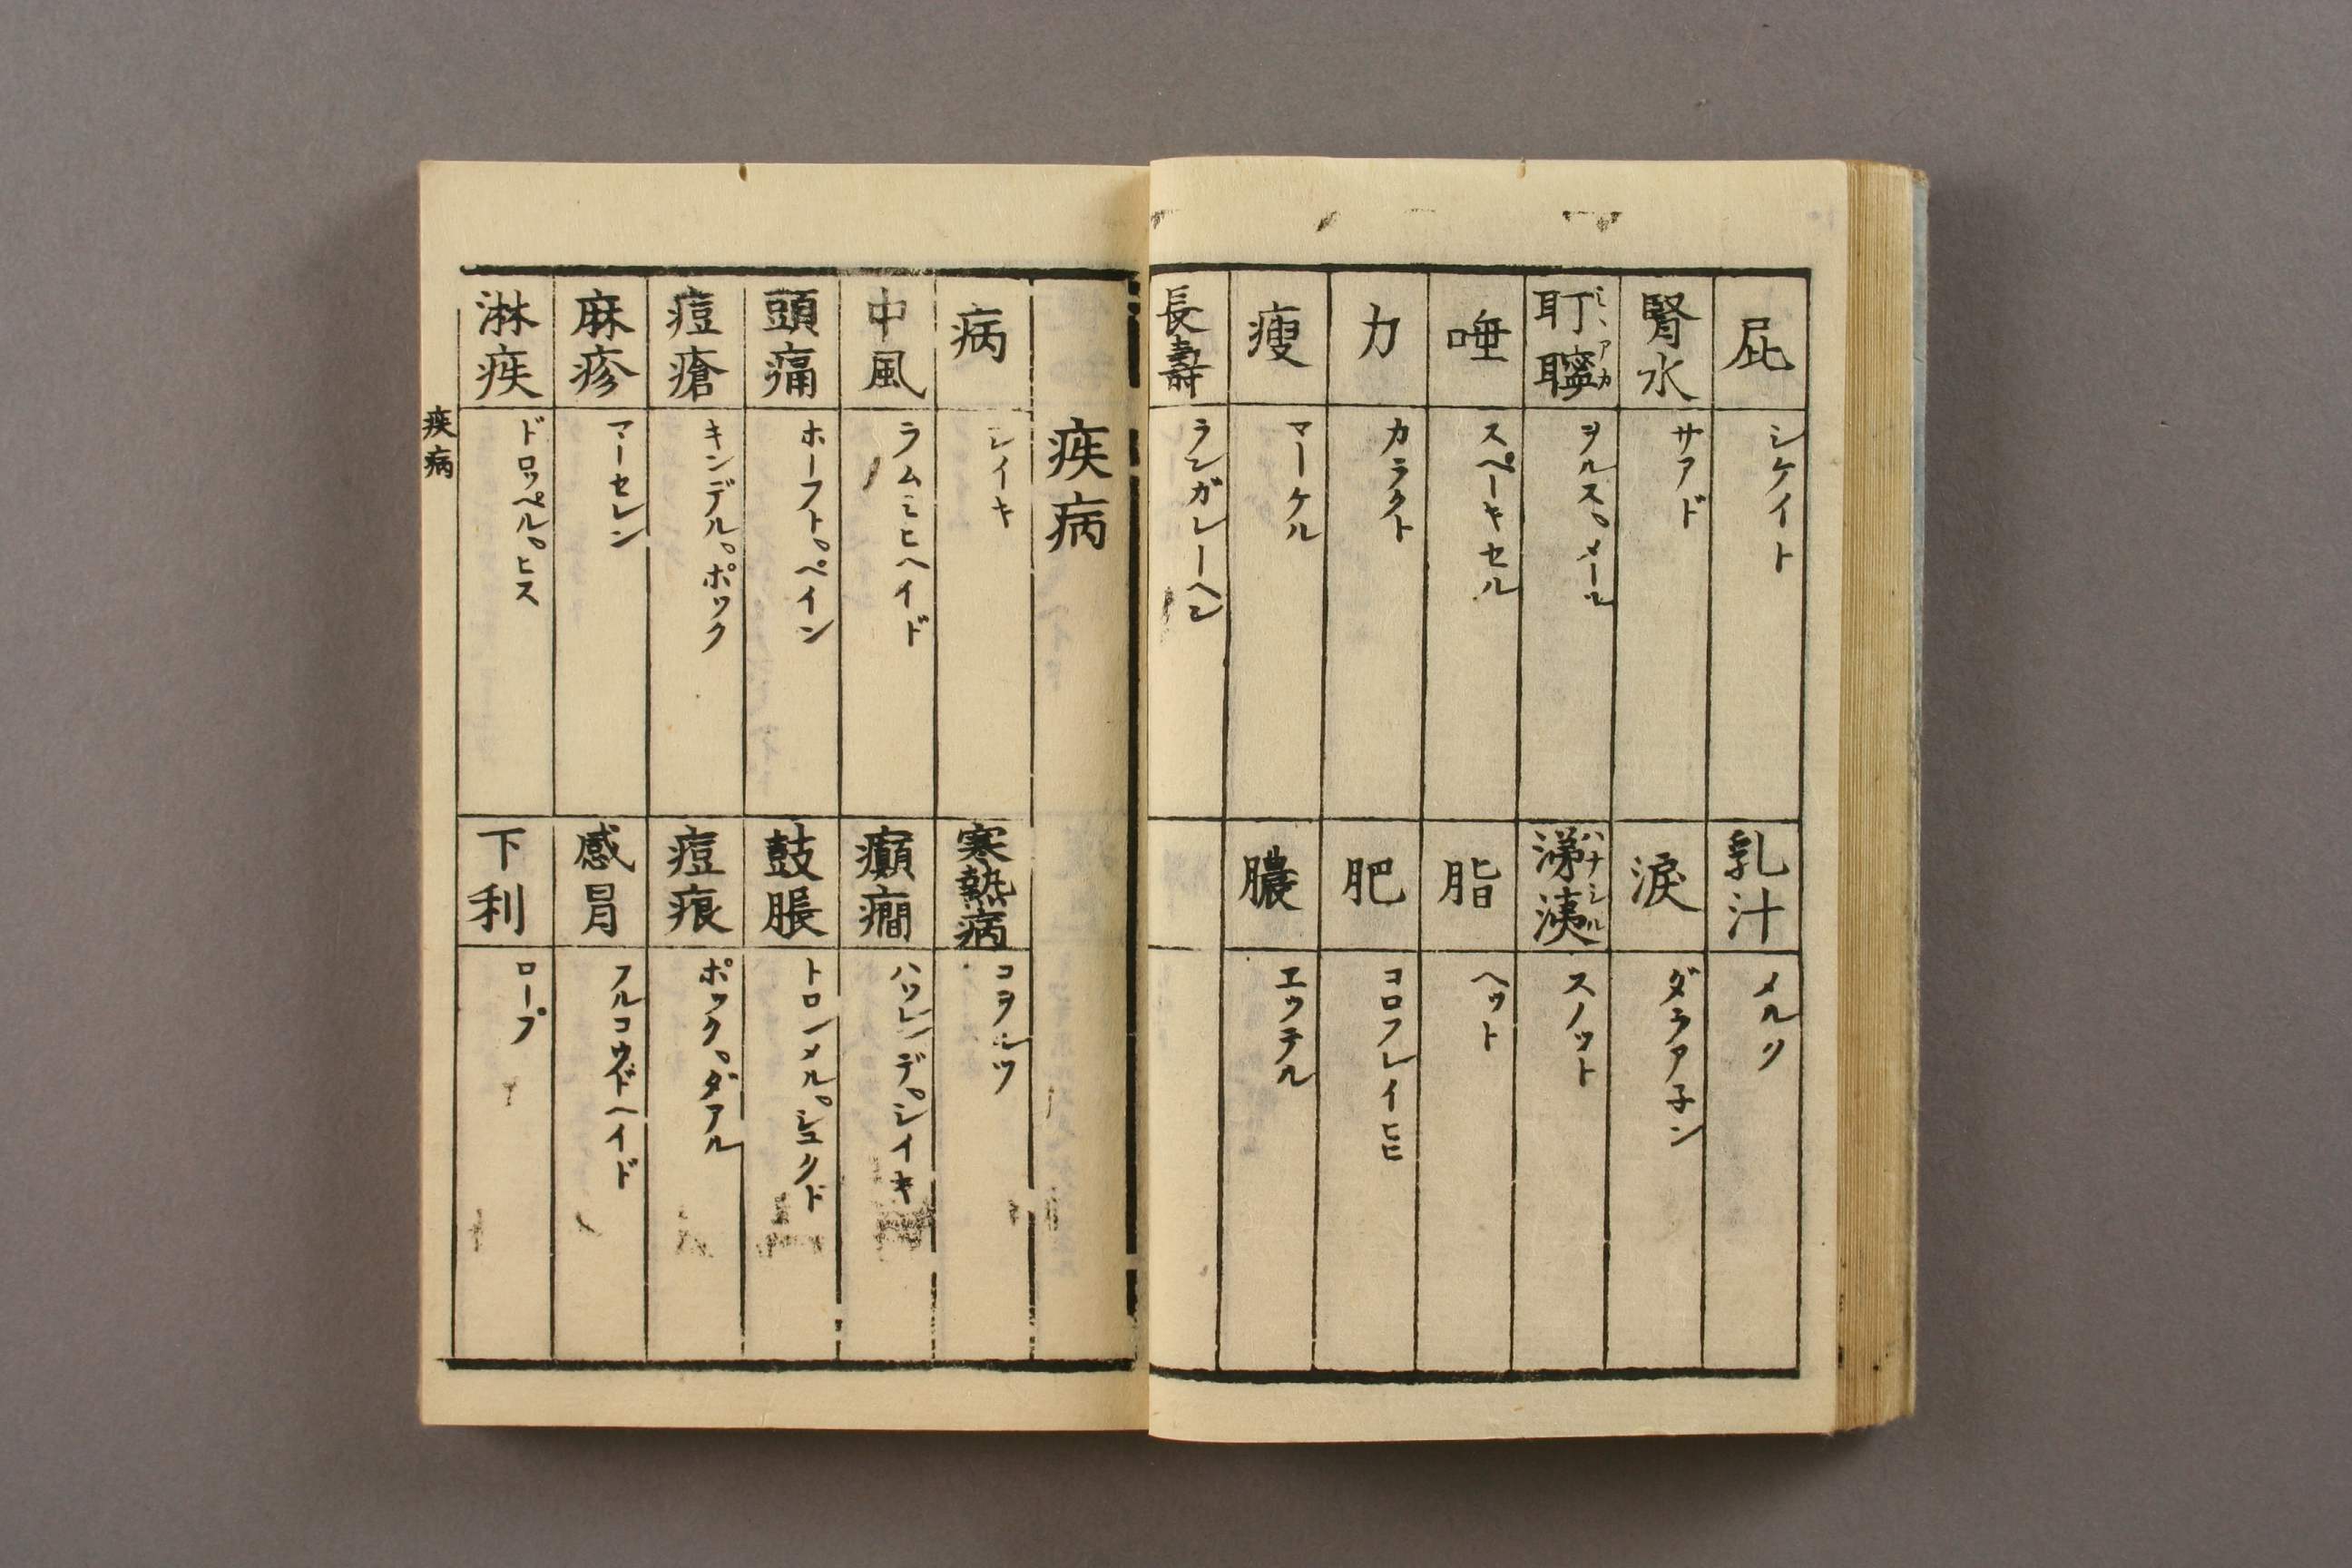 屁 シケイト
乳汁 メルク
腎水 サアド
涙 ダラア子ン
耵聹 ミヽアカ ヲルス。メール
涕洟 ハナシル スノット
唾 スペーキセル
脂 ヘット
力 カラクト
肥 コロフレイヒヒ
瘦 マーケル
膿 エッテル
長壽 ランガレーヘン
疾病
病 レイキ
寒熱病 コヲルツ
中風 ラムミヒヘイド
癲癇 ハルレンデ。シイキ
頭痛 ホーフト。ペイン
鼓脹 トロンメル。シュクド
痘瘡 キンデル。ポック
痘痕 ポック。ダアル
麻疹 マーセレン
感冒 フルコウドヘイド
淋疾 ドロッペル。ピス
下利 ロープ
疾病